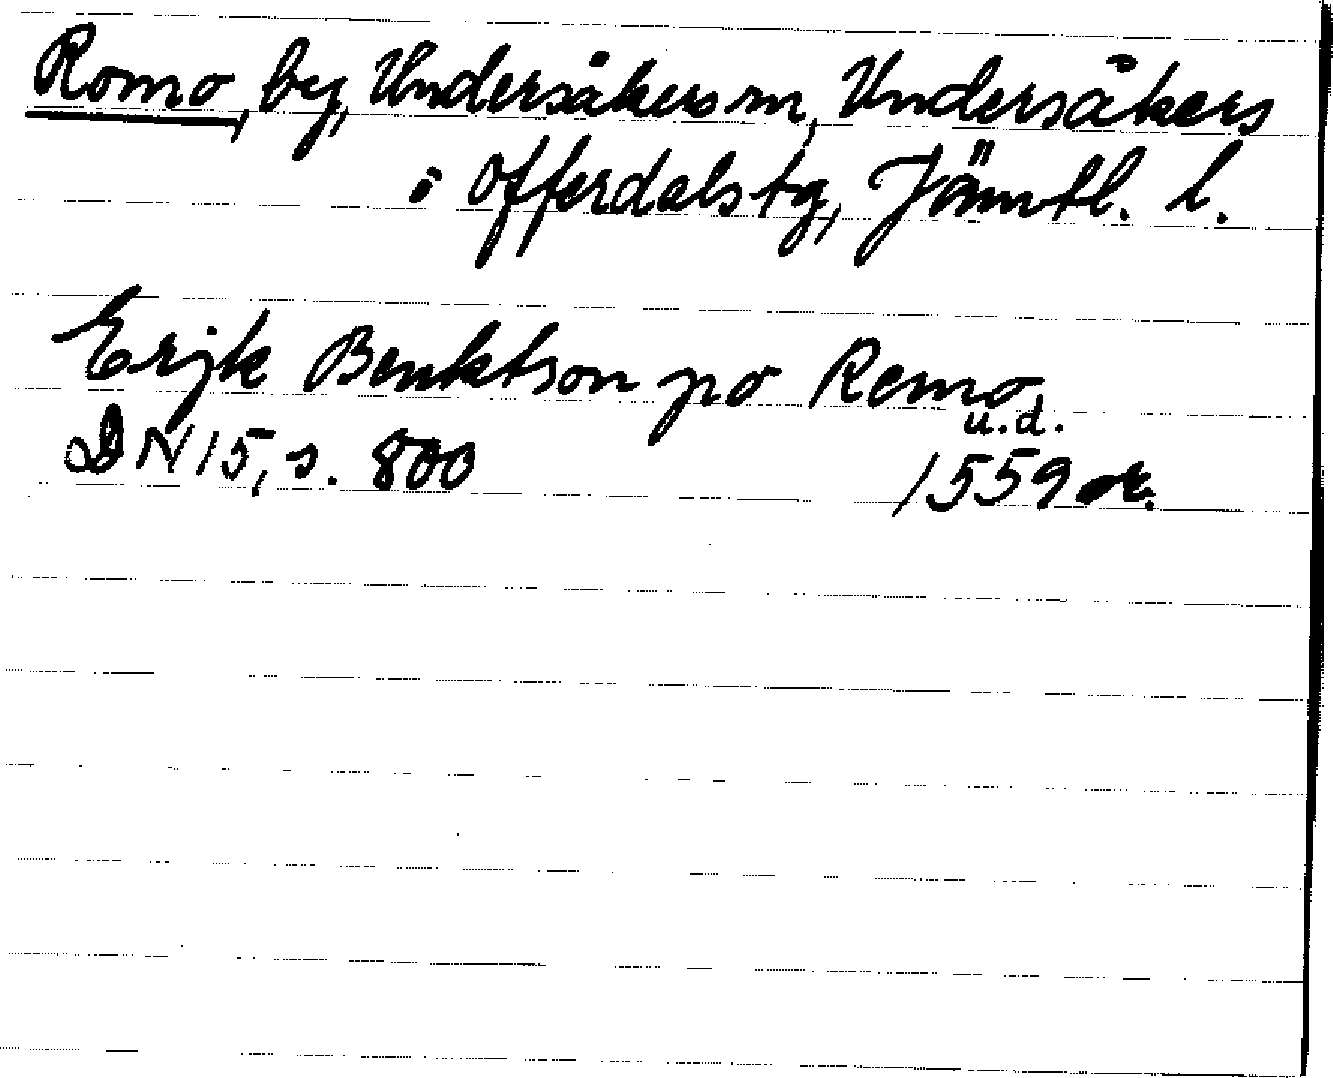 Romo, by, Undersåkers sn, Undersåkers
o Offerdals tg, Jämtl. l.
Erjk Benktson po Romo
u.d.
DN 15, s. 800 1559 or.